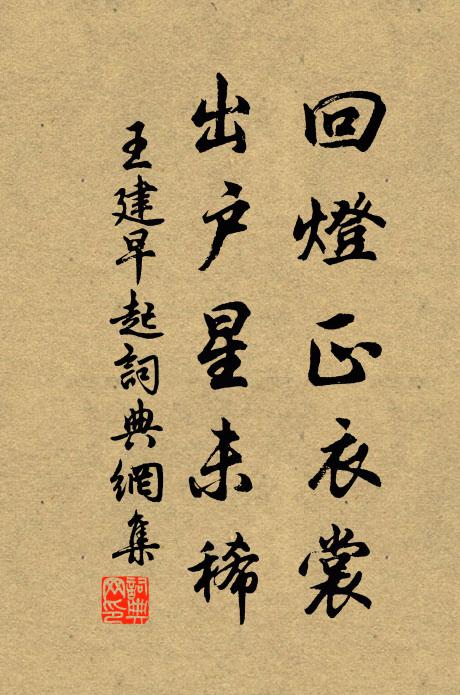 回燈正衣裳
出户星未稀
王建早起詞典網集
詞典網印